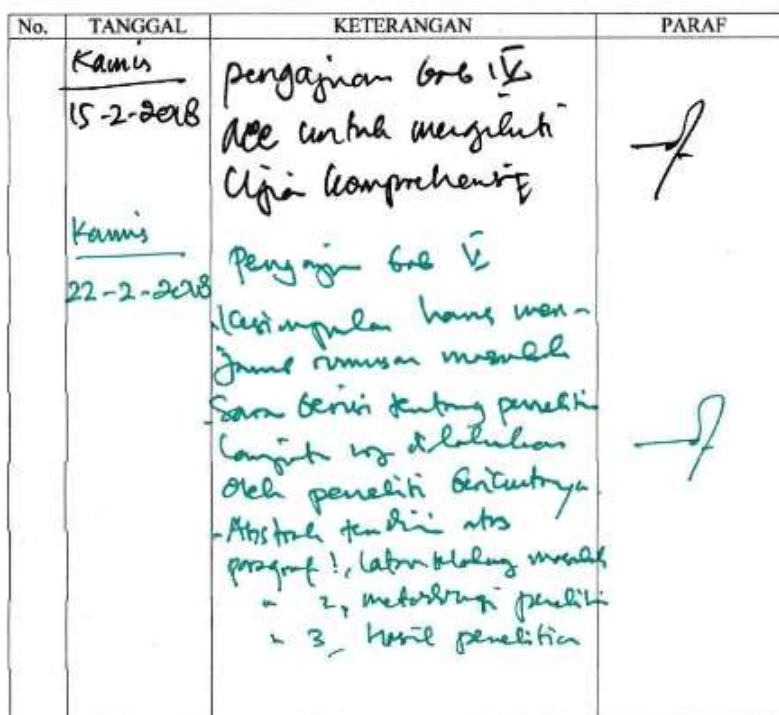 No. TANGGAL KETERANGAN PARAF
Kamis
15-2-2018
pengajuan bab IV
acc untuk mengikuti
Ujian Komprehensif
Kamis
22-2-2018
Pengajuan bab V
- Kesimpulan harus men-
jawab rumusan masalah
- Saran berisi tentang peneliti
lanjut yg dilakukan
oleh peneliti berikutnya.
- Abstrak terdiri atas
paragraf 1, latar belakang masalah
" 2, metodologi peneliti
" 3, hasil penelitian